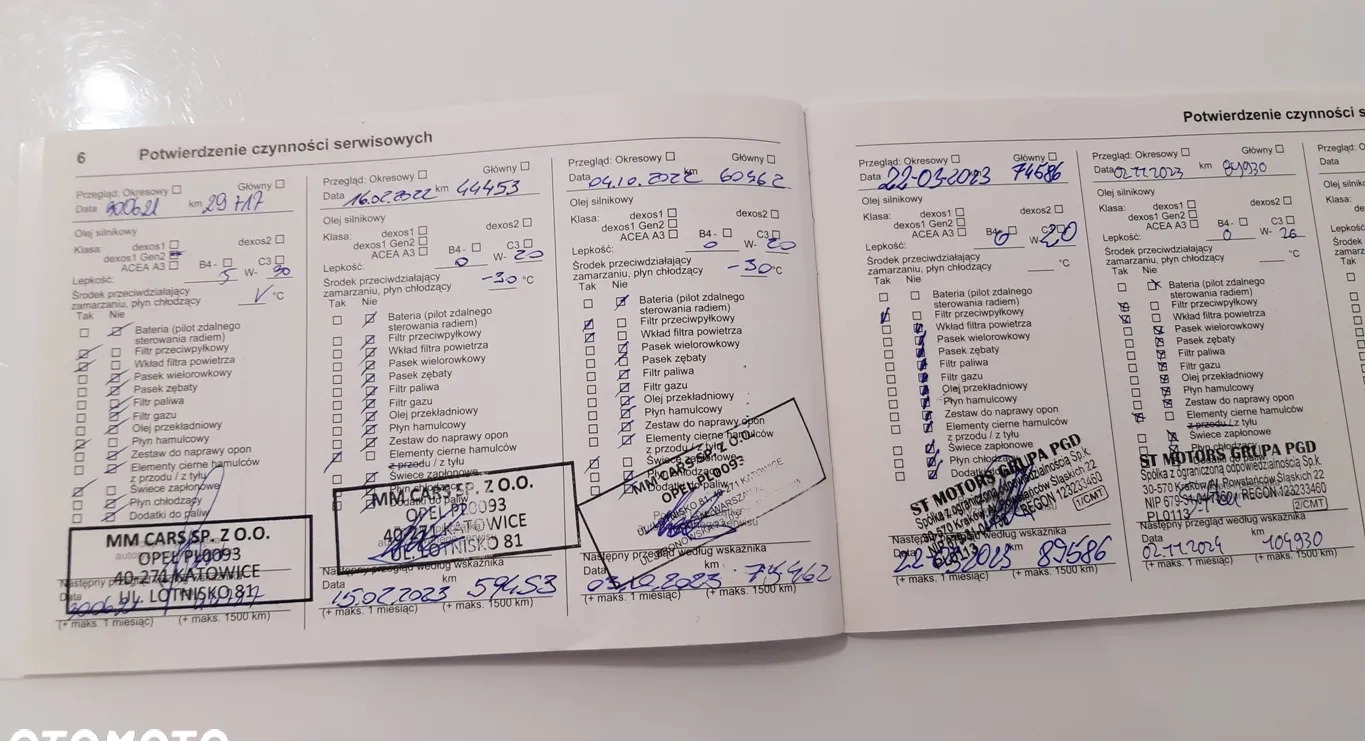 6 Potwierdzenie czynności serwisowych
Przegląd: Okresowy Główny
Data 300621 km 29717
Olej silnikowy
Klasa: dexos1 dexos2
dexos1 Gen2
ACEA A3 B4 - C3
Lepkość: 5 W- 30
Środek przeciwdziałający
zamarzaniu, płyn chłodzący °C
Tak Nie
Bateria (pilot zdalnego
sterowania radiem)
Filtr przeciwpyłkowy
Wkład filtra powietrza
Pasek wielorowkowy
Pasek zębaty
Filtr paliwa
Filtr gazu
Olej przekładniowy
Płyn hamulcowy
Zestaw do naprawy opon
Elementy cierne hamulców
z przodu / z tyłu
Świece zapłonowe
Płyn chłodzący
Dodatki do paliw
MM CARS SP. Z O.O.
OPEL PL0093
40-271 KATOWICE
UL. LOTNISKO 81
Następny przegląd według wskaźnika
Data
(+ maks. 1 miesiąc) (+ maks. 1500 km)
Przegląd: Okresowy Główny
Data 16.02.2022 km 44453
Olej silnikowy
Klasa: dexos1 dexos2
dexos1 Gen2
ACEA A3 B4 - C3
Lepkość: 0 W- 20
Środek przeciwdziałający
zamarzaniu, płyn chłodzący -30 °C
Tak Nie
Bateria (pilot zdalnego
sterowania radiem)
Filtr przeciwpyłkowy
Wkład filtra powietrza
Pasek wielorowkowy
Pasek zębaty
Filtr paliwa
Filtr gazu
Olej przekładniowy
Płyn hamulcowy
Zestaw do naprawy opon
Elementy cierne hamulców
z przodu / z tyłu
Świece zapłonowe
Płyn chłodzący
Dodatki do paliw
MM CARS SP. Z O.O.
OPEL PL0093
40-271 KATOWICE
UL. LOTNISKO 81
Następny przegląd według wskaźnika
Data 15.02.2023 km 59453
(+ maks. 1 miesiąc) (+ maks. 1500 km)
Przegląd: Okresowy Główny
Data 04.10.2022 km 60462
Olej silnikowy
Klasa: dexos1 dexos2
dexos1 Gen2
ACEA A3 B4 - C3
Lepkość: 0 W- 20
Środek przeciwdziałający
zamarzaniu, płyn chłodzący -30 °C
Tak Nie
Bateria (pilot zdalnego
sterowania radiem)
Filtr przeciwpyłkowy
Wkład filtra powietrza
Pasek wielorowkowy
Pasek zębaty
Filtr paliwa
Filtr gazu
Olej przekładniowy
Płyn hamulcowy
Zestaw do naprawy opon
Elementy cierne hamulców
z przodu / z tyłu
Świece zapłonowe
Płyn chłodzący
Dodatki do paliw
MM CARS SP. Z O.O.
OPEL PL0093
Następny przegląd według wskaźnika
Data 03.10.2023 km 75462
(+ maks. 1 miesiąc) (+ maks. 1500 km)
Potwierdzenie czynności s
Przegląd: Okresowy Główny
Data 22-03-2023 km 74586
Olej silnikowy
Klasa: dexos1 dexos2
dexos1 Gen2
ACEA A3 B4 - C3
Lepkość: 0 W- 20
Środek przeciwdziałający
zamarzaniu, płyn chłodzący °C
Tak Nie
Bateria (pilot zdalnego
sterowania radiem)
Filtr przeciwpyłkowy
Wkład filtra powietrza
Pasek wielorowkowy
Pasek zębaty
Filtr paliwa
Filtr gazu
Olej przekładniowy
Płyn hamulcowy
Zestaw do naprawy opon
Elementy cierne hamulców
z przodu / z tyłu
Świece zapłonowe
Płyn chłodzący
Dodatki do
ST MOTORS GRUPA PGD
Spółka z ograniczoną odpowiedzialnością Sp.k.
30-570 Kraków, Al. Powstańców Śląskich 22
REGON 123233460
1/CMT
Następny przegląd według wskaźnika
Data 22-03-2023 km 89586
(+ maks. 1 miesiąc) (+ maks. 1500 km)
Przegląd: Okresowy Główny
Data 02.11.2023 km 89930
Olej silnikowy
Klasa: dexos1 dexos2
dexos1 Gen2
ACEA A3 B4 - C3
Lepkość: 0 W- 20
Środek przeciwdziałający
zamarzaniu, płyn chłodzący °C
Tak Nie
Bateria (pilot zdalnego
sterowania radiem)
Filtr przeciwpyłkowy
Wkład filtra powietrza
Pasek wielorowkowy
Pasek zębaty
Filtr paliwa
Filtr gazu
Olej przekładniowy
Płyn hamulcowy
Zestaw do naprawy opon
Elementy cierne hamulców
z przodu / z tyłu
Świece zapłonowe
Płyn chłodzący
ST MOTORS GRUPA PGD
Spółka z ograniczoną odpowiedzialnością Sp.k.
30-570 Kraków, Al. Powstańców Śląskich 22
REGON 123233460
PL0113 2/CMT
Następny przegląd według wskaźnika
Data 02.11.2024 km 104930
(+ maks. 1 miesiąc) (+ maks. 1500 km)
Przegląd: O
Data
Olej silniko
Klasa:
Lepkość:
Środek prz
zamarzani
Tak
OTOMOTO